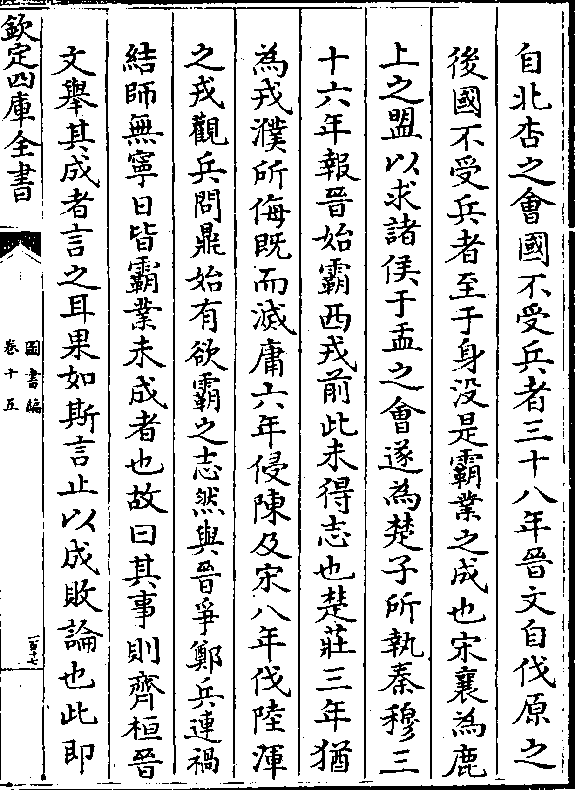 自北杏之會國不受兵者三十八年晉文自伐原之
後國不受兵者至于身没是霸業之成也宋襄為鹿
上之盟以求諸侯于盂之會遂為楚子所執秦穆三
十六年報晉始霸西戎前此未得志也楚莊三年猶
為戎濮所侮既而滅庸六年侵陳及宋八年伐陸渾
之戎觀兵問鼎始有欲霸之志然與晉爭鄭兵連禍
結師無寧日皆霸業未成者也故曰其事則齊桓晉
文舉其成者言之耳果如斯言止以成敗論也此即
欽定四庫全書
圖書編
卷十五